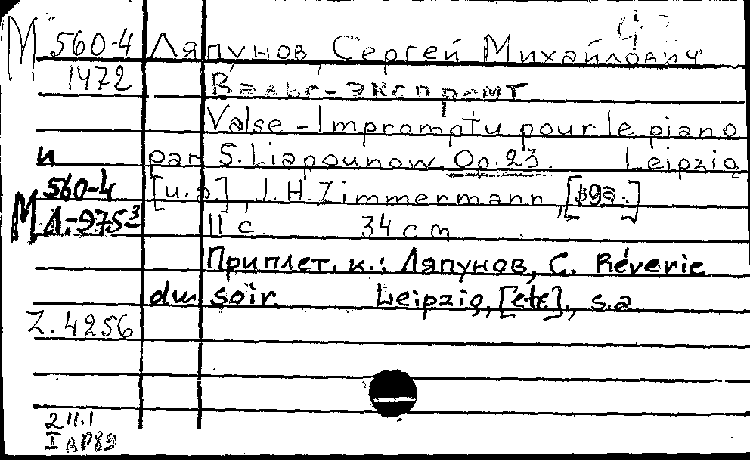 М 560-4 Ляпунов, Сергей Михайлович
1472 Вальс-экспромт
Valse-Impromptu pour le piano
и par S. Liapounow Op. 23. Leipzig
560-4 [u.a.], J.H. Zimmermann,
М Л-975³ 11 с 34 cm
Приплет. к.: Ляпунов, С. Rêverie
du soir. Leipzig, [etc], s.a
Z. 4256
2 11.1
I АР89